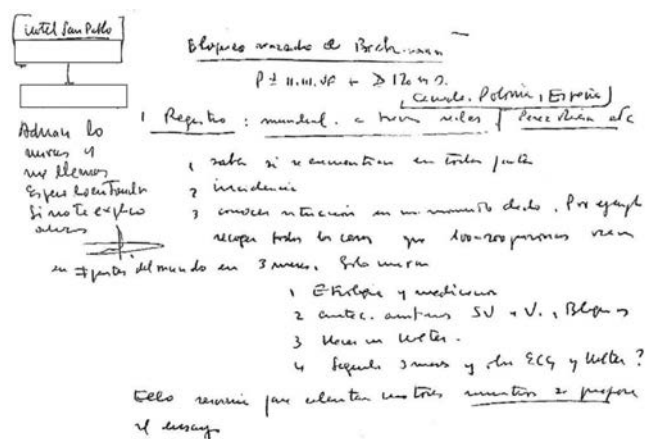 Hotel San Pablo
Bloqueo avanzado de Bachmann
P ± II.III.VF + ≥ 120 ms.
Canada, Polonia, España
1 Registro : mundial. a traves redes Perez Riera etc
Adrian lo
miras y
me llamas
Espero lo entiendas
Si no te explico
1 saber si se encuentran en todas partes
2 incidencia
3 conocer situacion en un momento dado. Por ejemplo
recoger todos los casos que 100-200 personas vean
en ≠ partes del mundo en 3 meses. Solo miran
1 Etiologia y medicacion
2 antec. SV + V., Bloqueos
3 Hacer un Holter.
4 Seguirlo 3 meses y otro ECG y Holter?
Ello para mientras se prepara
el ensayo